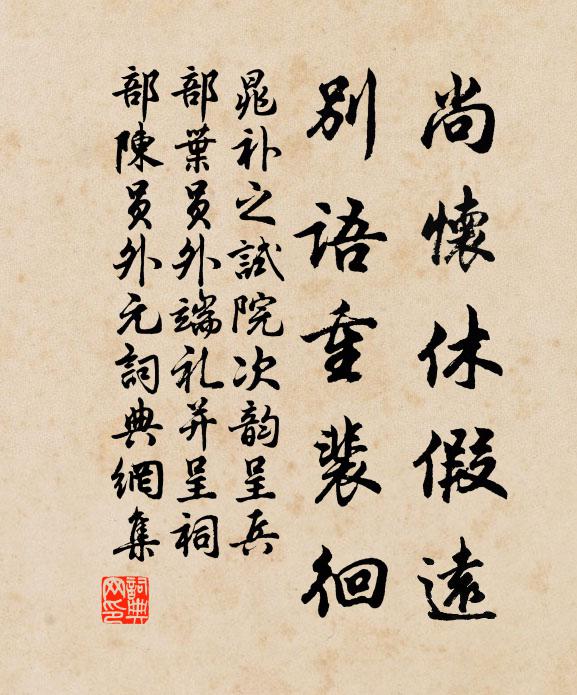 尚懷休假遠
別語重裴徊
晁补之試院次韵呈兵
部葉員外端礼并呈祠
部陳員外元詞典網集
詞典网印